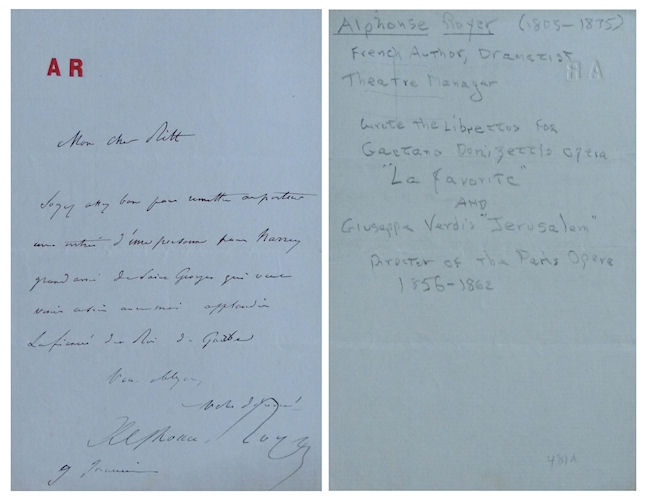 AR
Mon cher Ritt
Soyez assez bon pour remettre au porteur
une entrée d'une personne pour
grand ami de Saint Georges qui veut
venir ce soir avec moi applaudir
La fiancée du Roi de Garbe
Votre dévoué
Alphonse Royer
9 Janvier
Alphonse Royer (1803-1875)
French Author, Dramatist
Theatre Manager
AR
wrote the Librettos for
Gaetano Donizetti's opera
"La favorite"
AND
Giuseppe Verdi's "Jerusalem"
Director of the Paris Opera
1856-1862